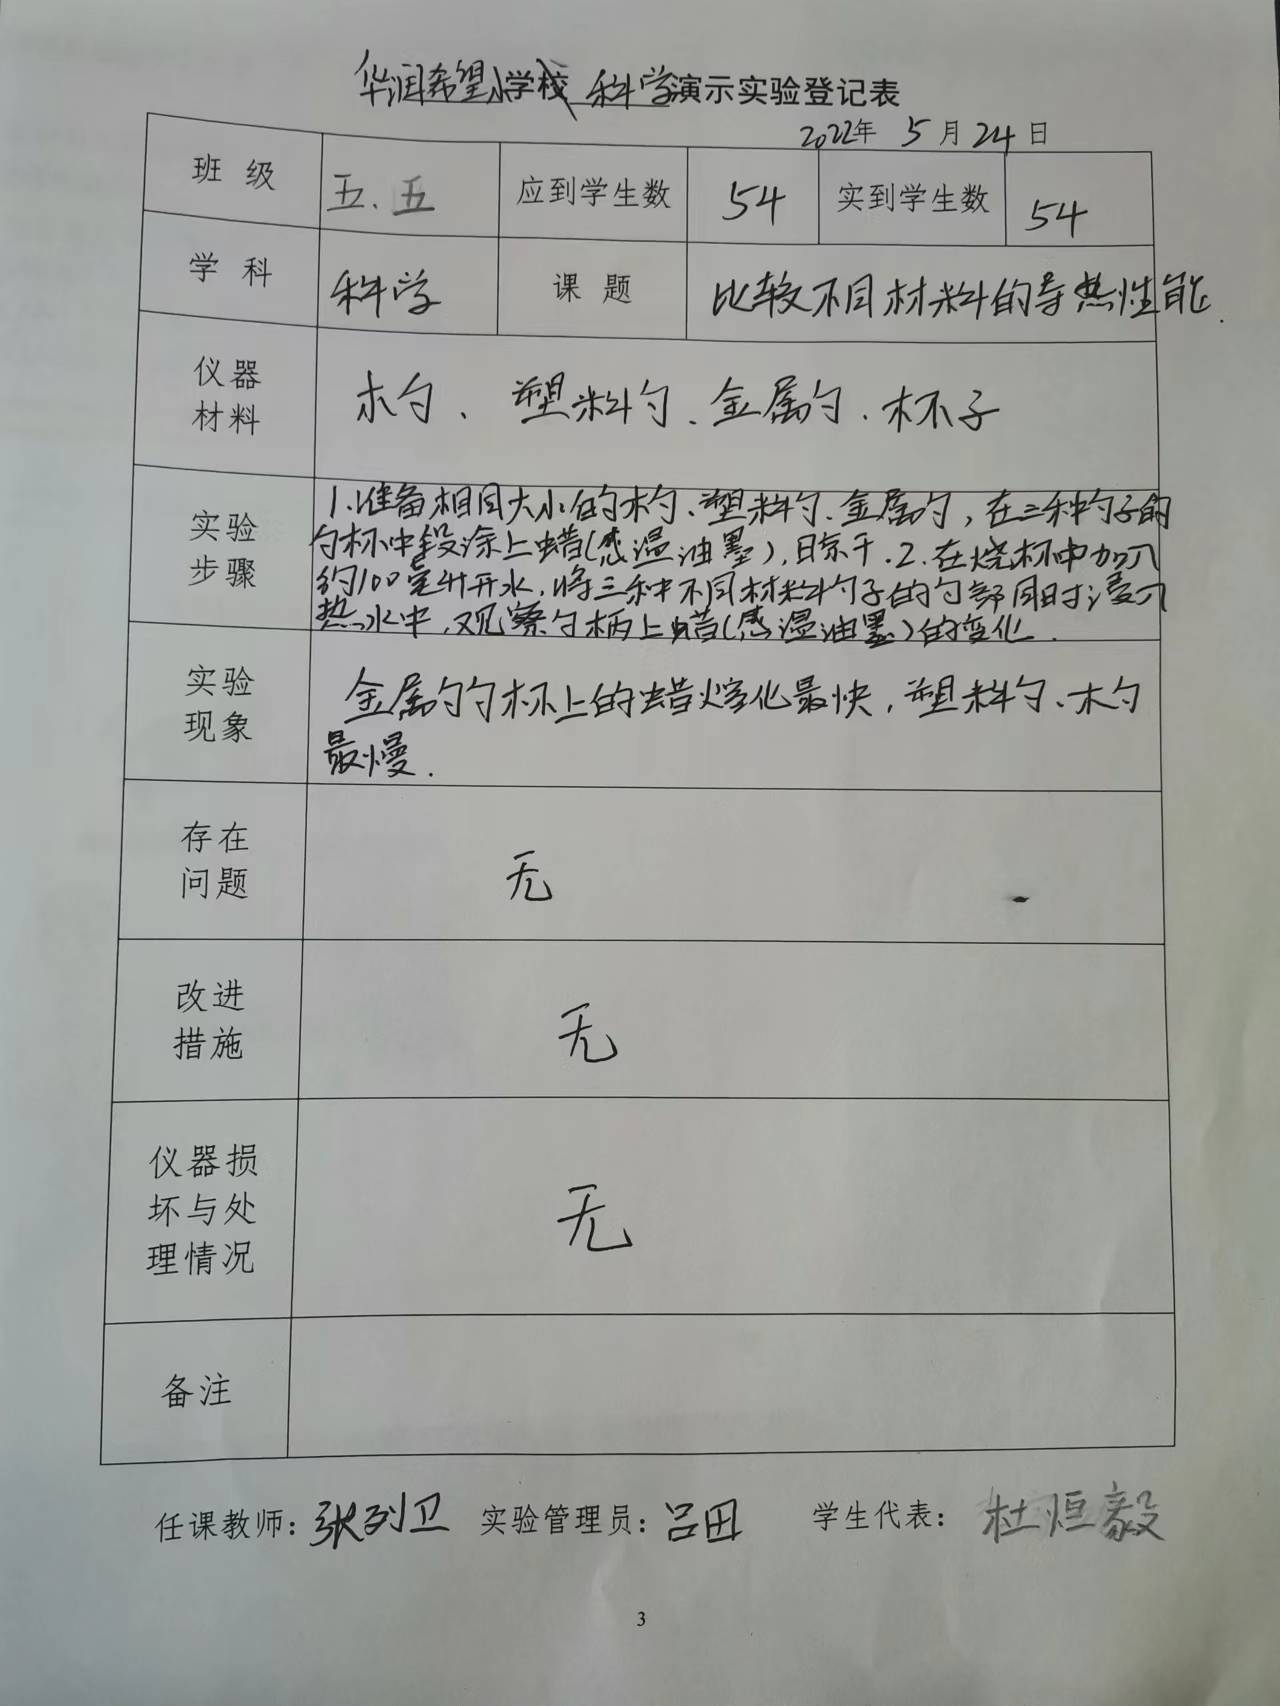 华润希望小学校 科学演示实验登记表
2022年 5月24日
班级 五.五 应到学生数 54 实到学生数 54
学科 科学 课题 比较不同材料的导热性能.
仪器
材料
木勺、塑料勺、金属勺、杯子
实验
步骤
1.准备相同大小的木勺、塑料勺、金属勺，在三种勺子的
勺柄中段涂上蜡(感温油墨)，晾干.2.在烧杯中加入
约100毫升开水，将三种不同材料勺子的勺部同时浸入
热水中，观察勺柄上蜡(感温油墨)的变化.
实验
现象
金属勺勺柄上的蜡熔化最快，塑料勺、木勺
最慢.
存在
问题
无
改进
措施
无
仪器损
坏与处
理情况
无
备注
任课教师：张列卫 实验管理员：吕田 学生代表：杜恒毅
3